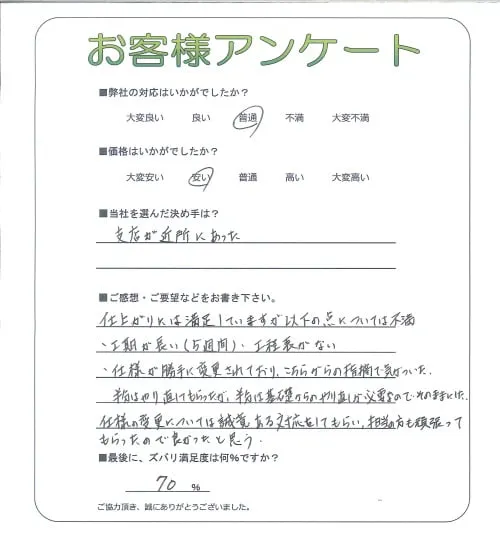 お客様アンケート
■弊社の対応はいかがでしたか？
大変良い 良い 普通 不満 大変不満
■価格はいかがでしたか？
大変安い 安い 普通 高い 大変高い
■当社を選んだ決め手は？
支店が近所にあった
■ご感想・ご要望などをお書き下さい。
仕上がりには満足していますが以下の点については不満
・工期が長い(5週間)・工程表がない
・仕様が勝手に変更されており、こちらからの指摘で気がついた。
半分はやり直してもらったが、半分は基礎からのやり直しが必要なのでそのままにした。
仕様の変更については誠意ある対応をしてもらい、担当の方も頑張って
もらったので良かったと思う.
■最後に、ズバリ満足度は何%ですか？
70 %
ご協力頂き、誠にありがとうございました。